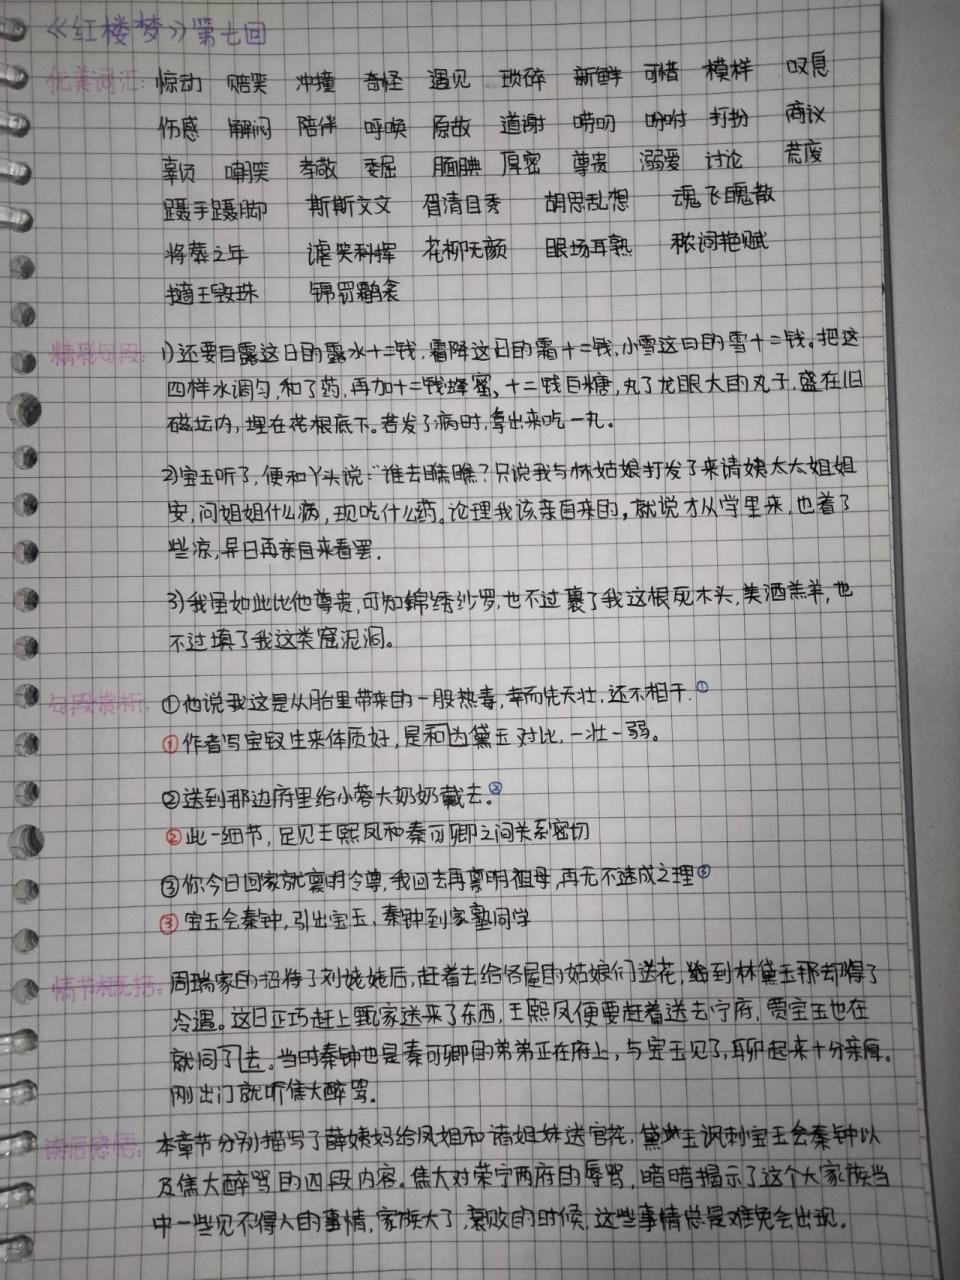 《红楼梦》第七回
优美词汇: 惊动 赔笑 冲撞 奇怪 遇见 琐碎 新鲜 可惜 模样 叹息
伤感 解闷 陪伴 呼唤 原故 道谢 唠叨 吩咐 打扮 商议
辜负 嘲笑 孝敬 委屈 腼腆 厚密 尊贵 溺爱 讨论 荒废
蹑手蹑脚 斯斯文文 眉清目秀 胡思乱想 魂飞魄散
将暮之年 谑笑科挥 花柳无颜 眼场耳熟 秾词艳赋
摘王毁珠 锦罽鹴衾
精彩句段: 1)还要白露这日的露水十二钱,霜降这日的霜十二钱,小雪这日的雪十二钱。把这
四样水调匀,和了药,再加十二钱蜂蜜、十二钱白糖,丸了龙眼大的丸子,盛在旧
磁坛内,埋在花根底下。若发了病时,拿出来吃一丸。
2)宝玉听了,便和丫头说:“谁去瞧瞧?只说我与林姑娘打发了来请姨太太姐姐
安,问姐姐什么病,现吃什么药。论理我该亲自来的,就说才从学里来,也着了
些凉,异日再亲自来看罢.
3)我虽如此比他尊贵,可知锦绣纱罗,也不过裹了我这根死木头,美酒羔羊,也
不过填了我这粪窟泥洞。
句段赏析: ①他说我这是从胎里带来的一股热毒,幸而先天壮,还不相干.①
①作者写宝钗生来体质好,是和凶黛玉对比,一壮一弱。
②送到那边府里给小蓉大奶奶戴去。②
②此一细节,足见王熙凤和秦可卿之间关系密切
③你今日回家就禀明令尊,我回去再禀明祖母,再无不速成之理③
③宝玉会秦钟,引出宝玉、秦钟到家塾同学
情节概括: 周瑞家的招待了刘姥姥后,赶着去给各屋的姑娘们送花,给到林黛玉那却得了
冷遇。这日正巧赶上甄家送来了东西,王熙凤便要赶着送去宁府,贾宝玉也在
就同了去。当时秦钟也是秦可卿的弟弟正在府上,与宝玉见了,聊起来十分亲厚。
刚出门就听焦大醉骂.
读后感悟: 本章节分别描写了薛姨妈给凤姐和诸姐妹送宫花,黛玉讽刺宝玉会秦钟以
及焦大醉骂的四段内容。焦大对荣宁两府的辱骂,暗暗揭示了这个大家族当
中一些见不得人的事情,家族大了,衰败的时候,这些事情总是难免会出现.